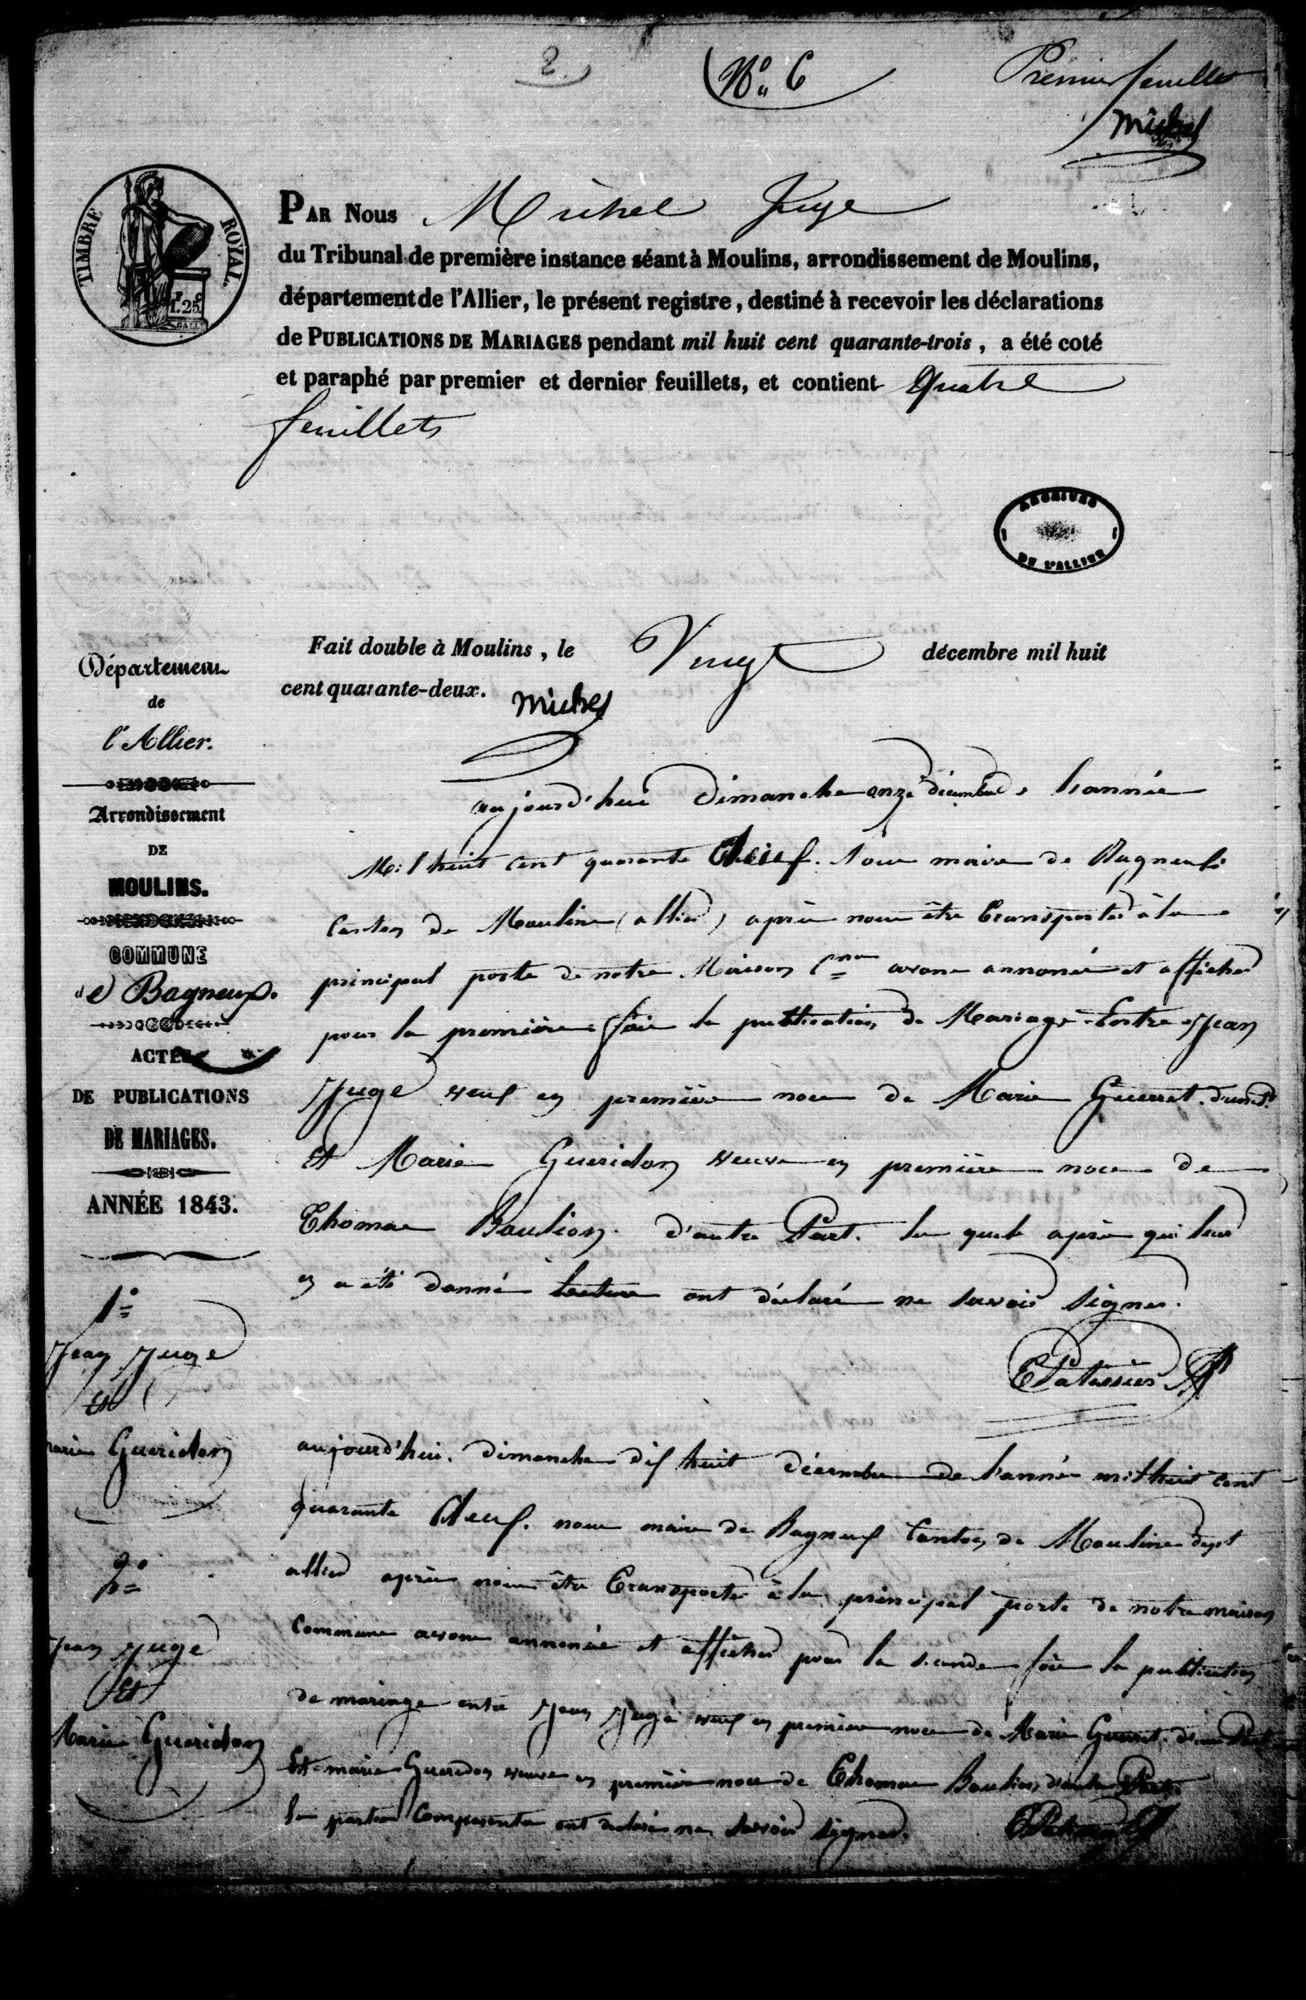 2
No 6
Premier feuillet
Michel
TIMBRE ROYAL.
1.25
PAR NOUS Michel Juge
du Tribunal de première instance séant à Moulins, arrondissement de Moulins,
département de l'Allier, le présent registre, destiné à recevoir les déclarations
de PUBLICATIONS DE MARIAGES pendant mil huit cent quarante-trois, a été coté
et paraphé par premier et dernier feuillets, et contient quatre
feuillets
ARCHIVES
DE L'ALLIER
Fait double à Moulins, le Vingt décembre mil huit
cent quarante-deux.
Michel
Département
de
l'Allier.
Arrondissement
DE
MOULINS.
COMMUNE
de Bagneux.
ACTES
DE PUBLICATIONS
DE MARIAGES.
ANNÉE 1843.
aujourd'hui dimanche onze décembre l'année
Mil huit cent quarante deux. Nous maire de Bagneux
Canton de Moulins (allier) après nous être transporté à la
principal porte de notre Maison Cne avons annoncé et affiché
pour la première fois la publication de Mariage Entre Jean
Juge veuf en première noce de Marie Guerret d'une pt
Et Marie Gueridon veuve en première noce de
Thomas Boulion. d'autre Part. lequels après qui leur
en a été donné lecture ont déclaré ne savoir signer.
1º
Jean Juge
Et
Marie Gueridon
aujourd'hui. dimanche dix huit décembre de l'année mil huit cent
quarante deux. nous maire de Bagneux Canton de Moulins dept
allier après nous être transporté à la principal porte de notre maison
Commune avons annoncé et affiché pour la seconde fois la publication
de mariage entre Jean Juge veuf en première noce de Marie Guerret. d'une Part
Et marie Gueridon veuve en première noce de Thomas Boulion d'autre Part
les parties Comparentes ont déclaré ne savoir signer.
2º
Jean Juge
Et
Marie Gueridon